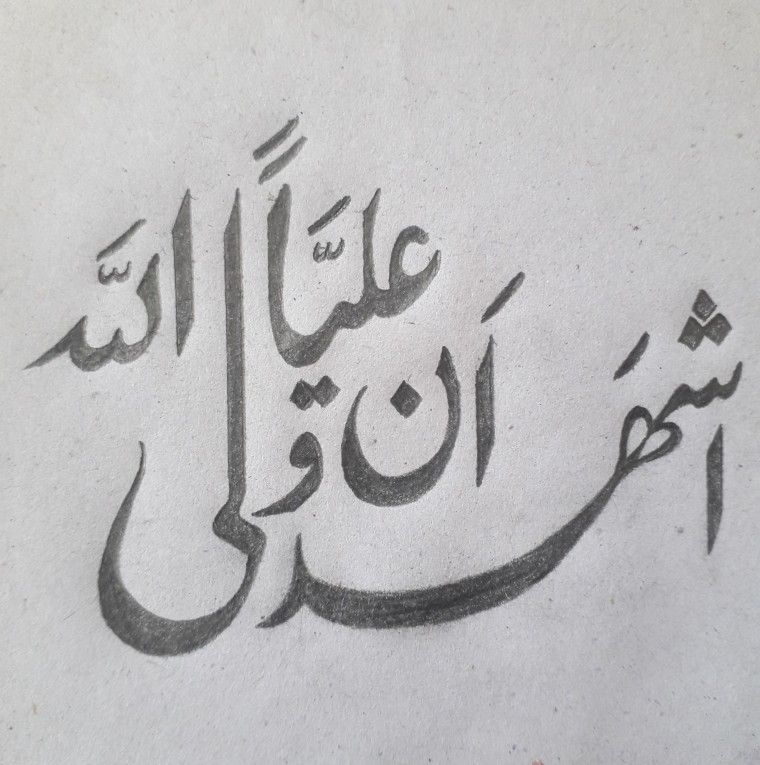 اشهَد اَن عليّاً ولی اللّه